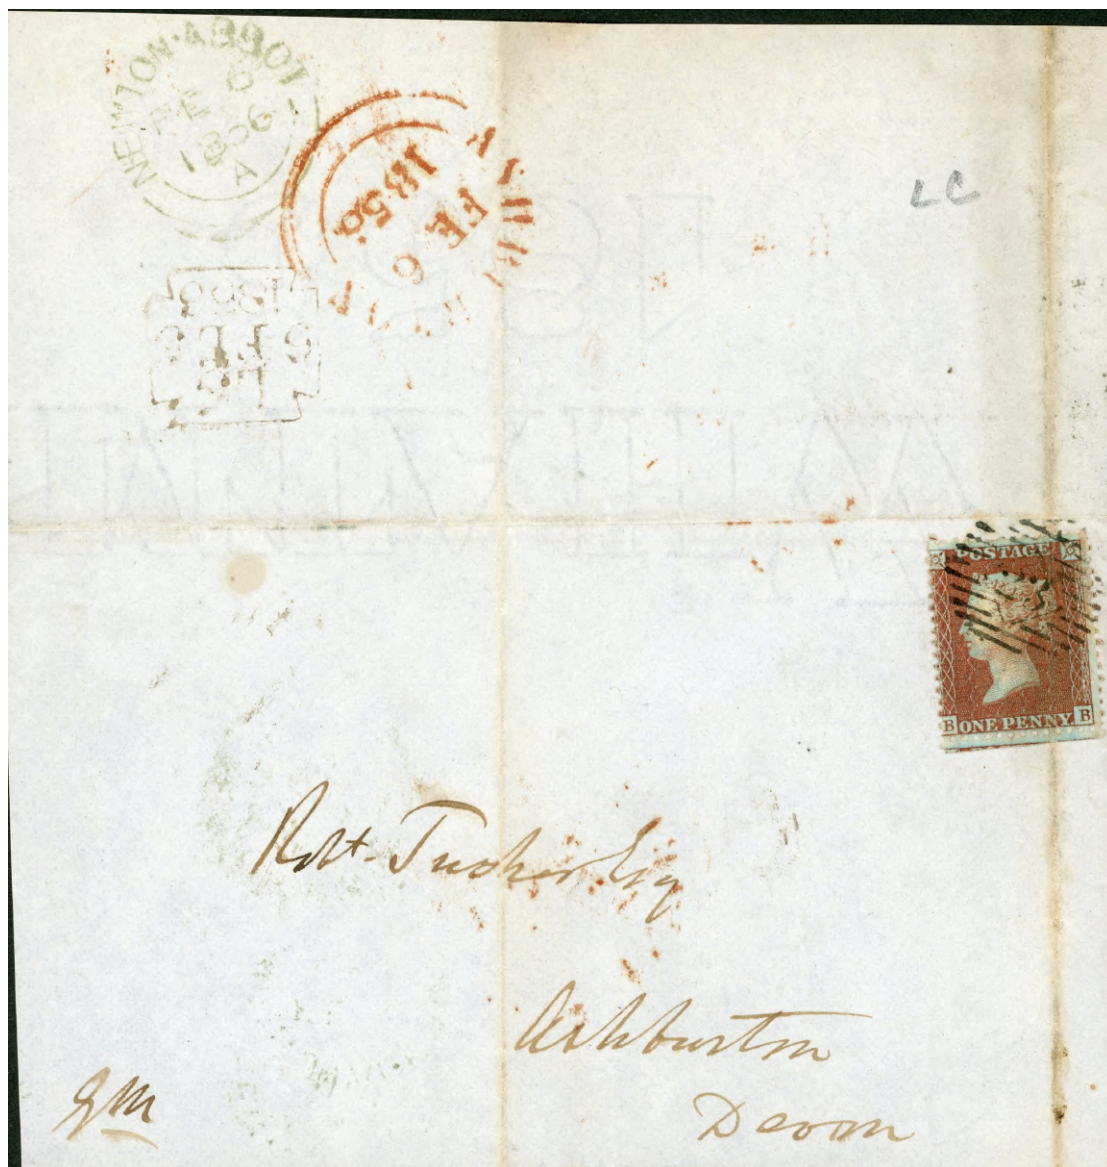 NEWTON·ABBOT
FE 6
1856
A
FE 6
1856
LC
POSTAGE
B ONE PENNY B
Robt. Tucker Esq
Ashburton
Devon